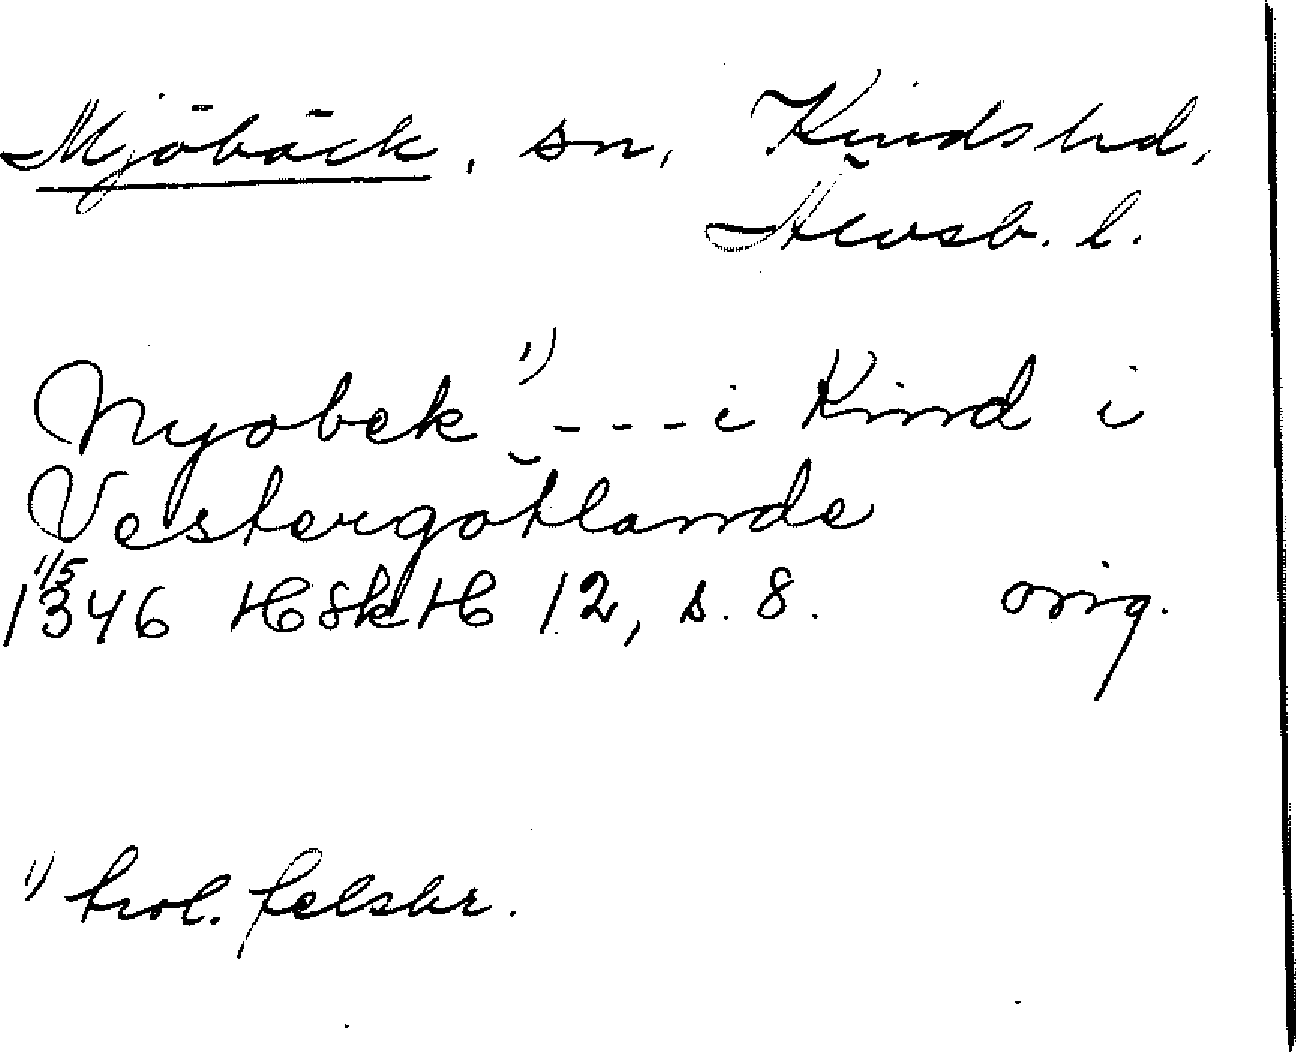 Mjöbäck, sn, Kinds hd,
Älvsb. l.
Nyobek ¹⁾ --- i Kind i
Vestergötlande
1/5
1346 HSkH 12, s. 8. orig.
¹⁾ trol. felskr.